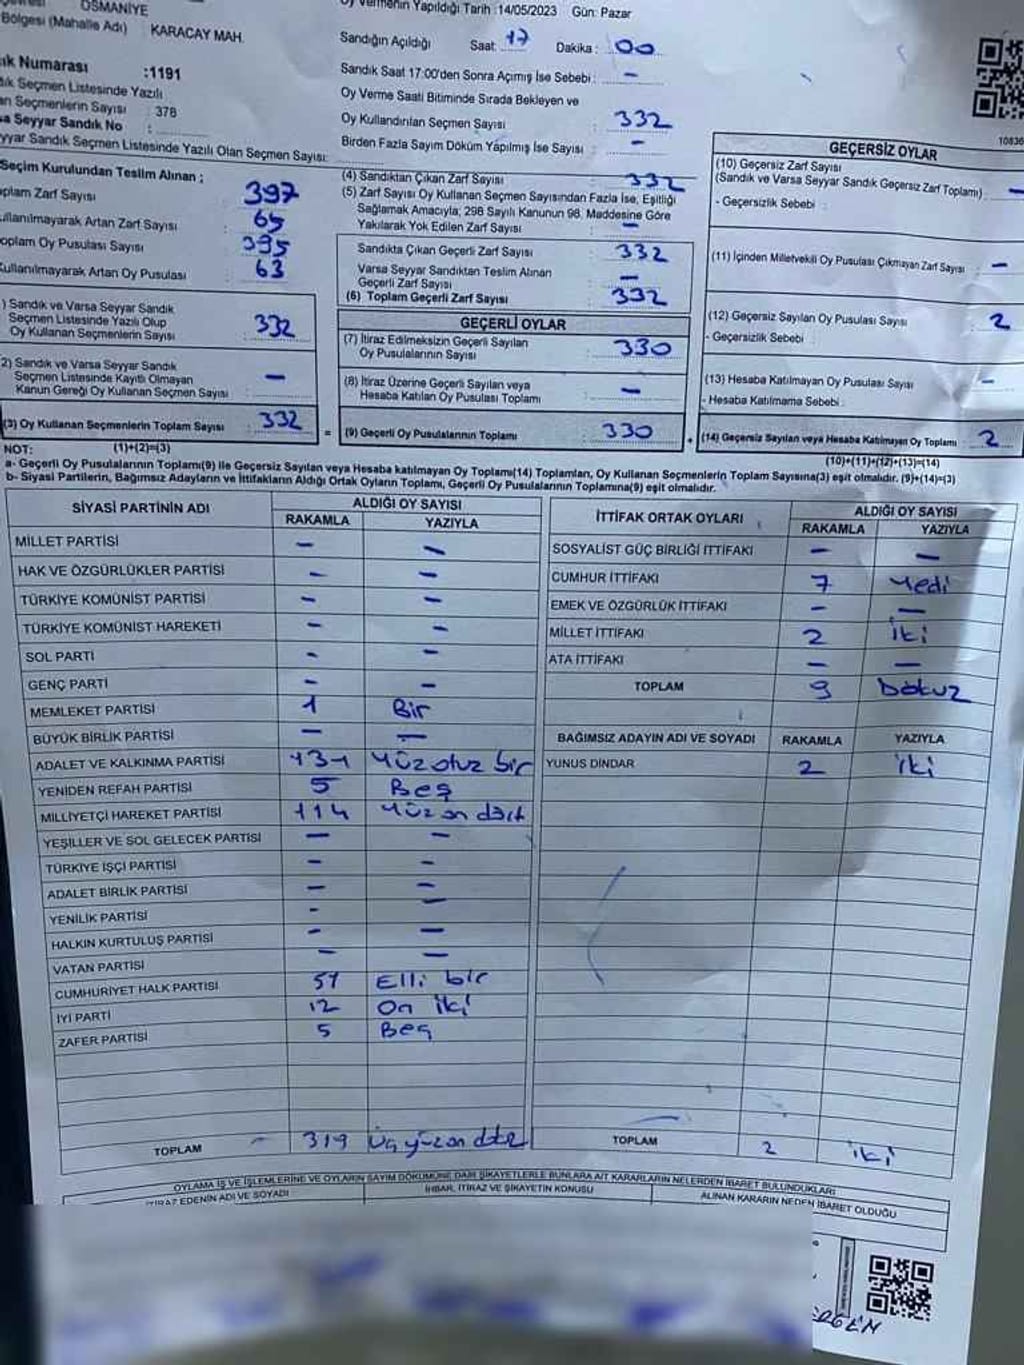 OSMANİYE
Bölgesi (Mahalle Adı) KARACAY MAH.
Numarası :1191
Seçmen Listesinde Yazılı
Seçmenlerin Sayısı : 378
Seyyar Sandık No :
Seyyar Sandık Seçmen Listesinde Yazılı Olan Seçmen Sayısı:
Seçim Kurulundan Teslim Alınan ;
Zarf Sayısı : 397
Artan Zarf Sayısı : 65
Oy Pusulası Sayısı : 395
Artan Oy Pusulası : 63
) Sandık ve Varsa Seyyar Sandık
Seçmen Listesinde Yazılı Olup
Oy Kullanan Seçmenlerin Sayısı : 332
2) Sandık ve Varsa Seyyar Sandık
Seçmen Listesinde Kayıtlı Olmayan
Kanun Gereği Oy Kullanan Seçmen Sayısı : –
(3) Oy Kullanan Seçmenlerin Toplam Sayısı : 332
Oy Vermenin Yapıldığı Tarih :14/05/2023 Gün: Pazar
Sandığın Açıldığı Saat: 17 Dakika : 00
Sandık Saat 17:00'den Sonra Açımış İse Sebebi : –
Oy Verme Saati Bitiminde Sırada Bekleyen ve
Oy Kullandırılan Seçmen Sayısı : 332
Birden Fazla Sayım Döküm Yapılmış İse Sayısı : –
(4) Sandıktan Çıkan Zarf Sayısı : 332
(5) Zarf Sayısı Oy Kullanan Seçmen Sayısından Fazla İse, Eşitliği
Sağlamak Amacıyla; 298 Sayılı Kanunun 98. Maddesine Göre
Yakılarak Yok Edilen Zarf Sayısı : –
Sandıkta Çıkan Geçerli Zarf Sayısı : 332
Varsa Seyyar Sandıktan Teslim Alınan
Geçerli Zarf Sayısı : –
(6) Toplam Geçerli Zarf Sayısı : 332
GEÇERLİ OYLAR
(7) İtiraz Edilmeksizin Geçerli Sayılan
Oy Pusulalarının Sayısı : 330
(8) İtiraz Üzerine Geçerli Sayılan veya
Hesaba Katılan Oy Pusulası Toplamı : –
= (9) Geçerli Oy Pusulalarının Toplamı : 330
10836
GEÇERSİZ OYLAR
(10) Geçersiz Zarf Sayısı
(Sandık ve Varsa Seyyar Sandık Geçersiz Zarf Toplamı) : –
- Geçersizlik Sebebi :
(11) İçinden Milletvekili Oy Pusulası Çıkmayan Zarf Sayısı : –
(12) Geçersiz Sayılan Oy Pusulası Sayısı : 2
- Geçersizlik Sebebi :
(13) Hesaba Katılmayan Oy Pusulası Sayısı : –
- Hesaba Katılmama Sebebi :
+ (14) Geçersiz Sayılan veya Hesaba Katılmayan Oy Toplamı : 2
NOT: (1)+(2)=(3)
(10)+(11)+(12)+(13)=(14)
a- Geçerli Oy Pusulalarının Toplamı(9) ile Geçersiz Sayılan veya Hesaba katılmayan Oy Toplamı(14) Toplamları, Oy Kullanan Seçmenlerin Toplam Sayısına(3) eşit olmalıdır. (9)+(14)=(3)
b- Siyasi Partilerin, Bağımsız Adayların ve İttifakların Aldığı Ortak Oyların Toplamı, Geçerli Oy Pusulalarının Toplamına(9) eşit olmalıdır.
SİYASİ PARTİNİN ADI ALDIĞI OY SAYISI
RAKAMLA YAZIYLA
MİLLET PARTİSİ – –
HAK VE ÖZGÜRLÜKLER PARTİSİ – –
TÜRKİYE KOMÜNİST PARTİSİ – –
TÜRKİYE KOMÜNİST HAREKETİ – –
SOL PARTİ – –
GENÇ PARTİ – –
MEMLEKET PARTİSİ 1 Bir
BÜYÜK BİRLİK PARTİSİ – –
ADALET VE KALKINMA PARTİSİ 131 Yüzotuz bir
YENİDEN REFAH PARTİSİ 5 Beş
MİLLİYETÇİ HAREKET PARTİSİ 114 Yüz on dört
YEŞİLLER VE SOL GELECEK PARTİSİ – –
TÜRKİYE İŞÇİ PARTİSİ – –
ADALET BİRLİK PARTİSİ – –
YENİLİK PARTİSİ – –
HALKIN KURTULUŞ PARTİSİ – –
VATAN PARTİSİ – –
CUMHURİYET HALK PARTİSİ 51 Elli bir
İYİ PARTİ 12 On iki
ZAFER PARTİSİ 5 Beş
TOPLAM 319
İTTİFAK ORTAK OYLARI ALDIĞI OY SAYISI
RAKAMLA YAZIYLA
SOSYALİST GÜÇ BİRLİĞİ İTTİFAKI – –
CUMHUR İTTİFAKI 7 Yedi
EMEK VE ÖZGÜRLÜK İTTİFAKI – –
MİLLET İTTİFAKI 2 İki
ATA İTTİFAKI – –
TOPLAM 9 Dokuz
BAĞIMSIZ ADAYIN ADI VE SOYADI RAKAMLA YAZIYLA
YUNUS DİNDAR 2 İki
TOPLAM 2 iki
OYLAMA İŞ VE İŞLEMLERİNE VE OYLARIN SAYIM DÖKÜMÜNE DAİR ŞİKAYETLERLE BUNLARA AİT KARARLARIN NELERDEN İBARET BULUNDUKLARI
İTİRAZ EDENİN ADI VE SOYADI İHBAR, İTİRAZ VE ŞİKAYETİN KONUSU ALINAN KARARIN NEDEN İBARET OLDUĞU